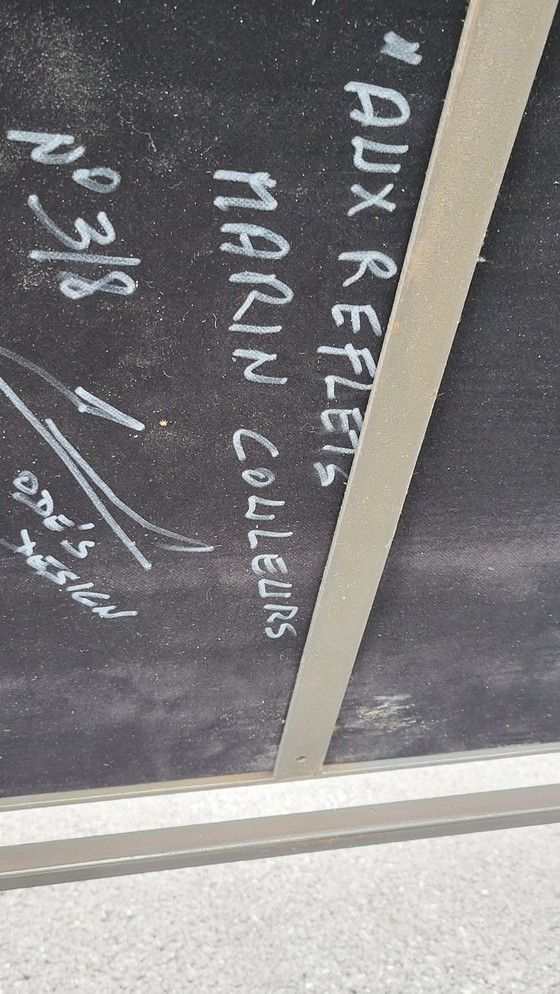 " AUX REFLETS
MARIN COULEURS
N° 3/8
ODE'S
DESIGN